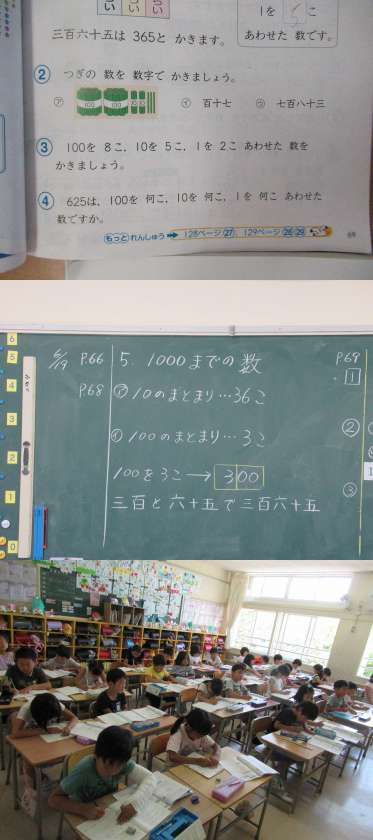 1を 5 こ
三百六十五は 365と かきます。
あわせた 数です。
② つぎの 数を 数字で かきましょう。
㋐ 100 100 10 10
㋑ 百十七
㋒ 七百八十三
③ 100を 8こ、10を 5こ、1を 2こ あわせた 数を
かきましょう。
④ 625は、100を 何こ、10を 何こ、1を 何こ あわせた
数ですか。
もっと れんしゅう ➡ 128ページ 27、129ページ 28 29
69
6
5
4
3
2
1
0
6/19 P.66
P.68
5. 1000までの数
㋐ 10のまとまり…36こ
㋑ 100のまとまり…3こ
100を3こ→300
三百と六十五で三百六十五
P.69
1
②
③